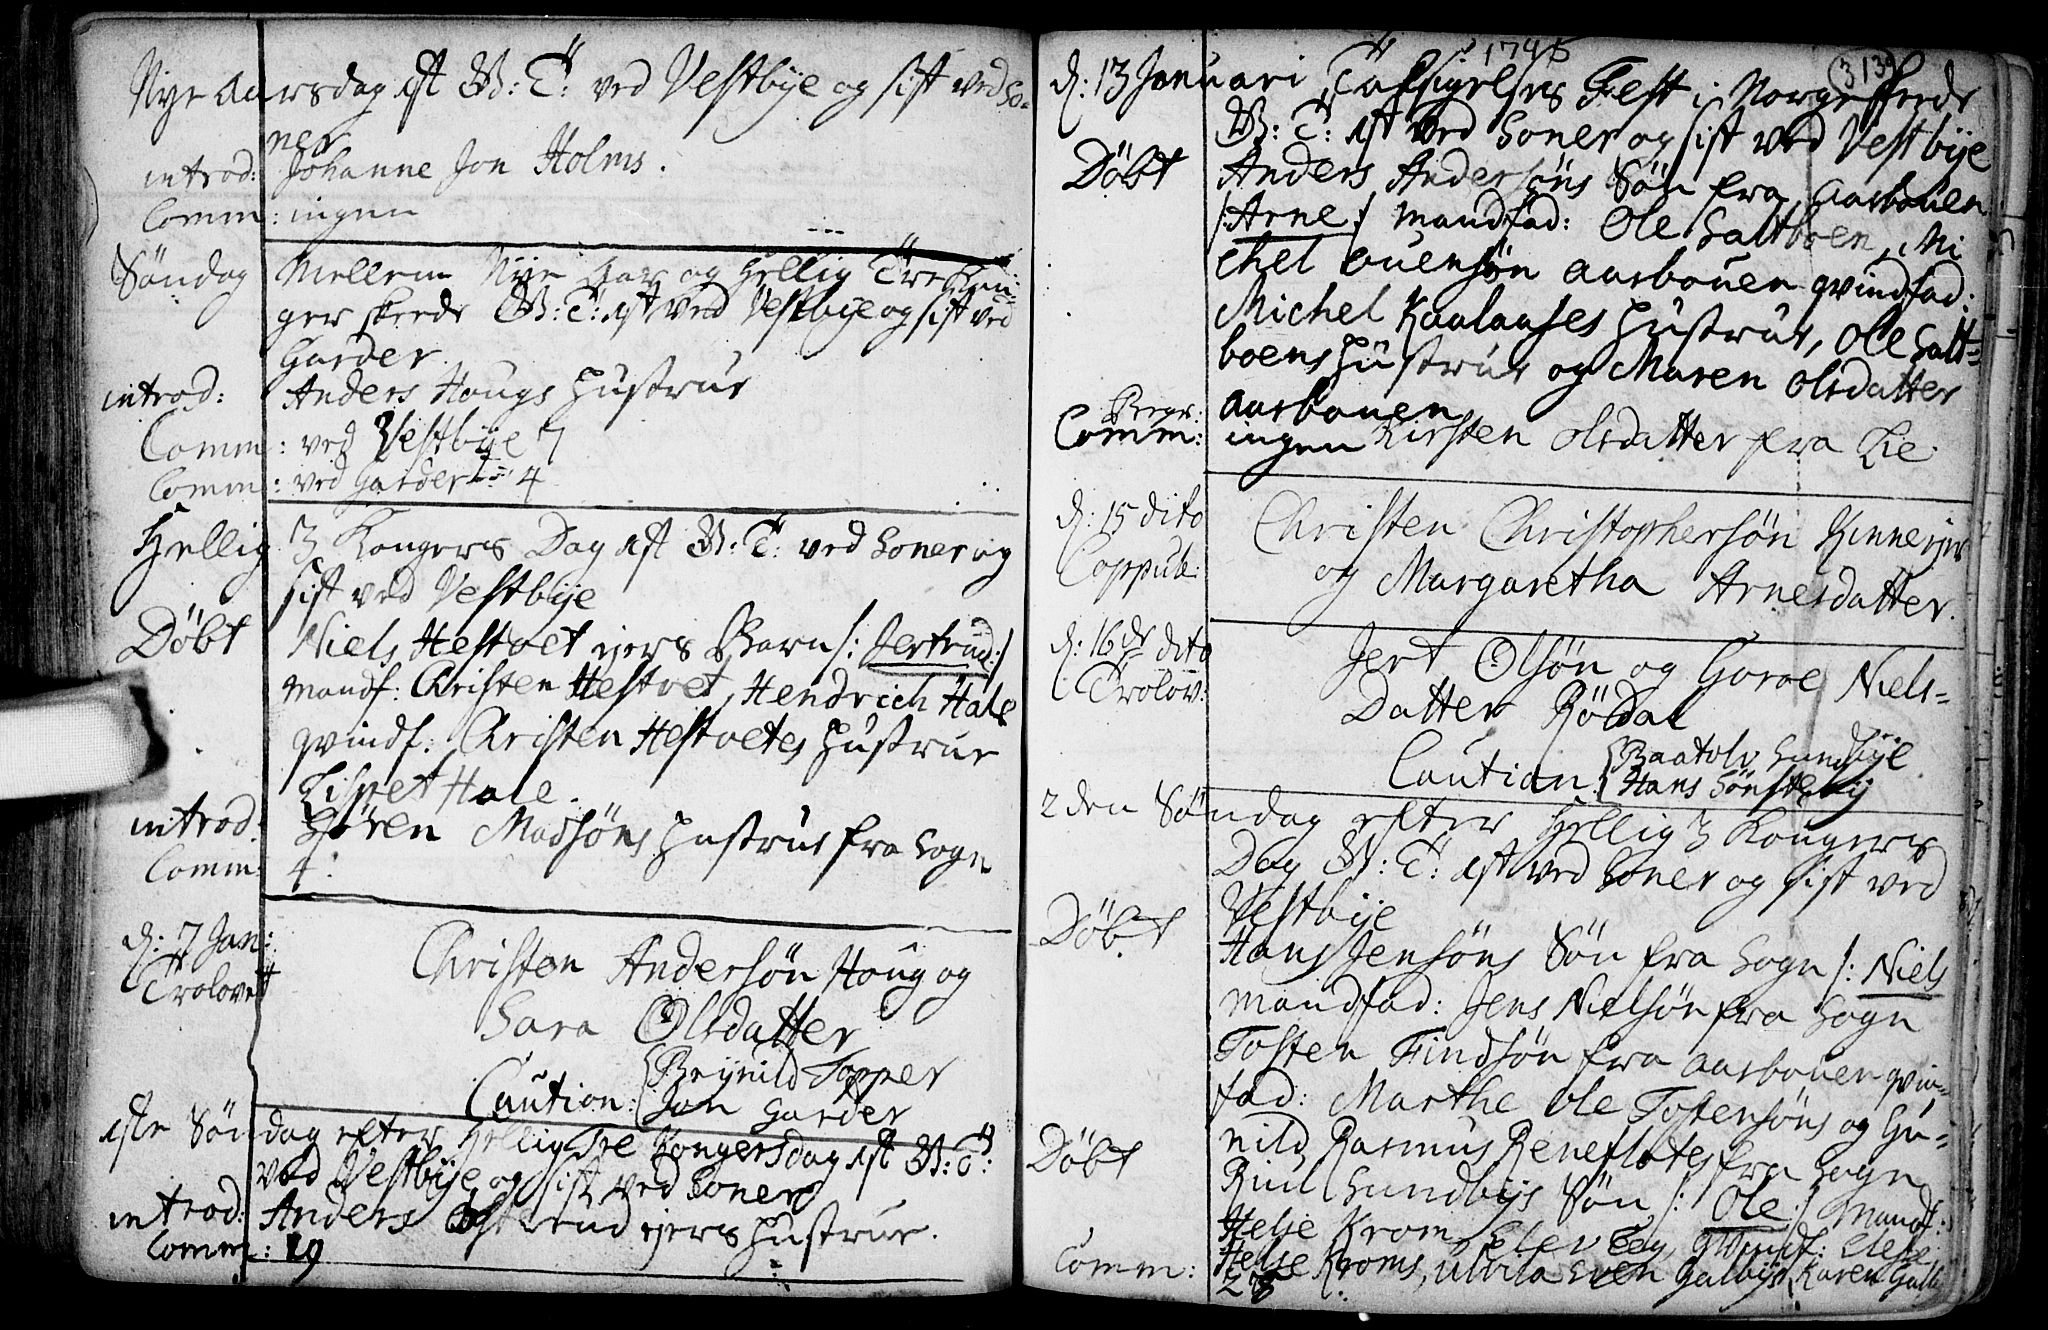 Nye Aarsdag 1st G: T: ved Vestbye og sist ved So-
ner
introd: Johanne Jon Holms.
Comm: ingen
Søndag Mellem Nye Aar og Hellig Tre Kon-
ger skeede G: T: 1st ved Vestbye og sist ved
Garder
introd: Anders Hougs Hustrue
Comm: ved Vestbye 7
Comm: ved Garder 4
Hellig 3 Kongers Dag 1st G: T: ved Soner og
sist ved Vestbye
Döbt Niels Hestvet ejers Barn /: Jertrud :/
mandf: Christen Hestvet, Hendrich Hale
qvindf: Christen Hestvetes Hustrue
Lispet Hale.
introd: Sören Madsöns Hustrue fra Sogn
Comm: 4:
d: 7 Jan: Christen Andersön Houg og
Trolovet Sara Olsdatter
Caution: Topper
Jon Garder
1ste Søndag efter Hellig Tre Kongersdag 1st G: T:
ved Vestbye og sist ved Soner
introd: Anders ejers Hustrue.
Comm: 19
1745
313
d: 13 Januari, Fest i Norge skeede
G: T: 1st ved Soner og sist ved Vestbye
Döbt Anders Andersöns Sön fra Aasbouen
/: Arne :/ mandfad: Ole Saltboen, Mi
chel ouensøn Aasbouen qvindfad:
Michel Kaalaases Hustrue, Ole Salt-
boens Hustrue og Maren Olsdatter
Aasbouen
Begr: Kirsten Olsdatter fra Lie
Comm: ingen
d: 15 dito Christen Christophersön Kinne ejer
Coppul: og Margaretha Arnesdatter.
d: 16 de dito Jert Olsön og Goroe Niels-
Trolov: Datter Rödal
Caution: Baatolv Sundbye
Hans Sönsteby
2den Søndag efter Hellig 3 Kongers
Dag G: T: 1st ved Soner og sist ved
Vestbye
Döbt Hans Jensöns Sön fra Sogn /: Niels
mandfad: Jens Nielsön fra Sogn
Tosten Findsön fra Aasbouen qvin-
fad: Marthe Ole Tostensöns og Gu-
nild Rasmus Reneflotes fra Sogn
Döbt Sundbys Sön /: Ole :/ Mandf:
Helje Krom, qvindf:
Helje Kroms, Even Galbys, Karen Galb
Comm: 28